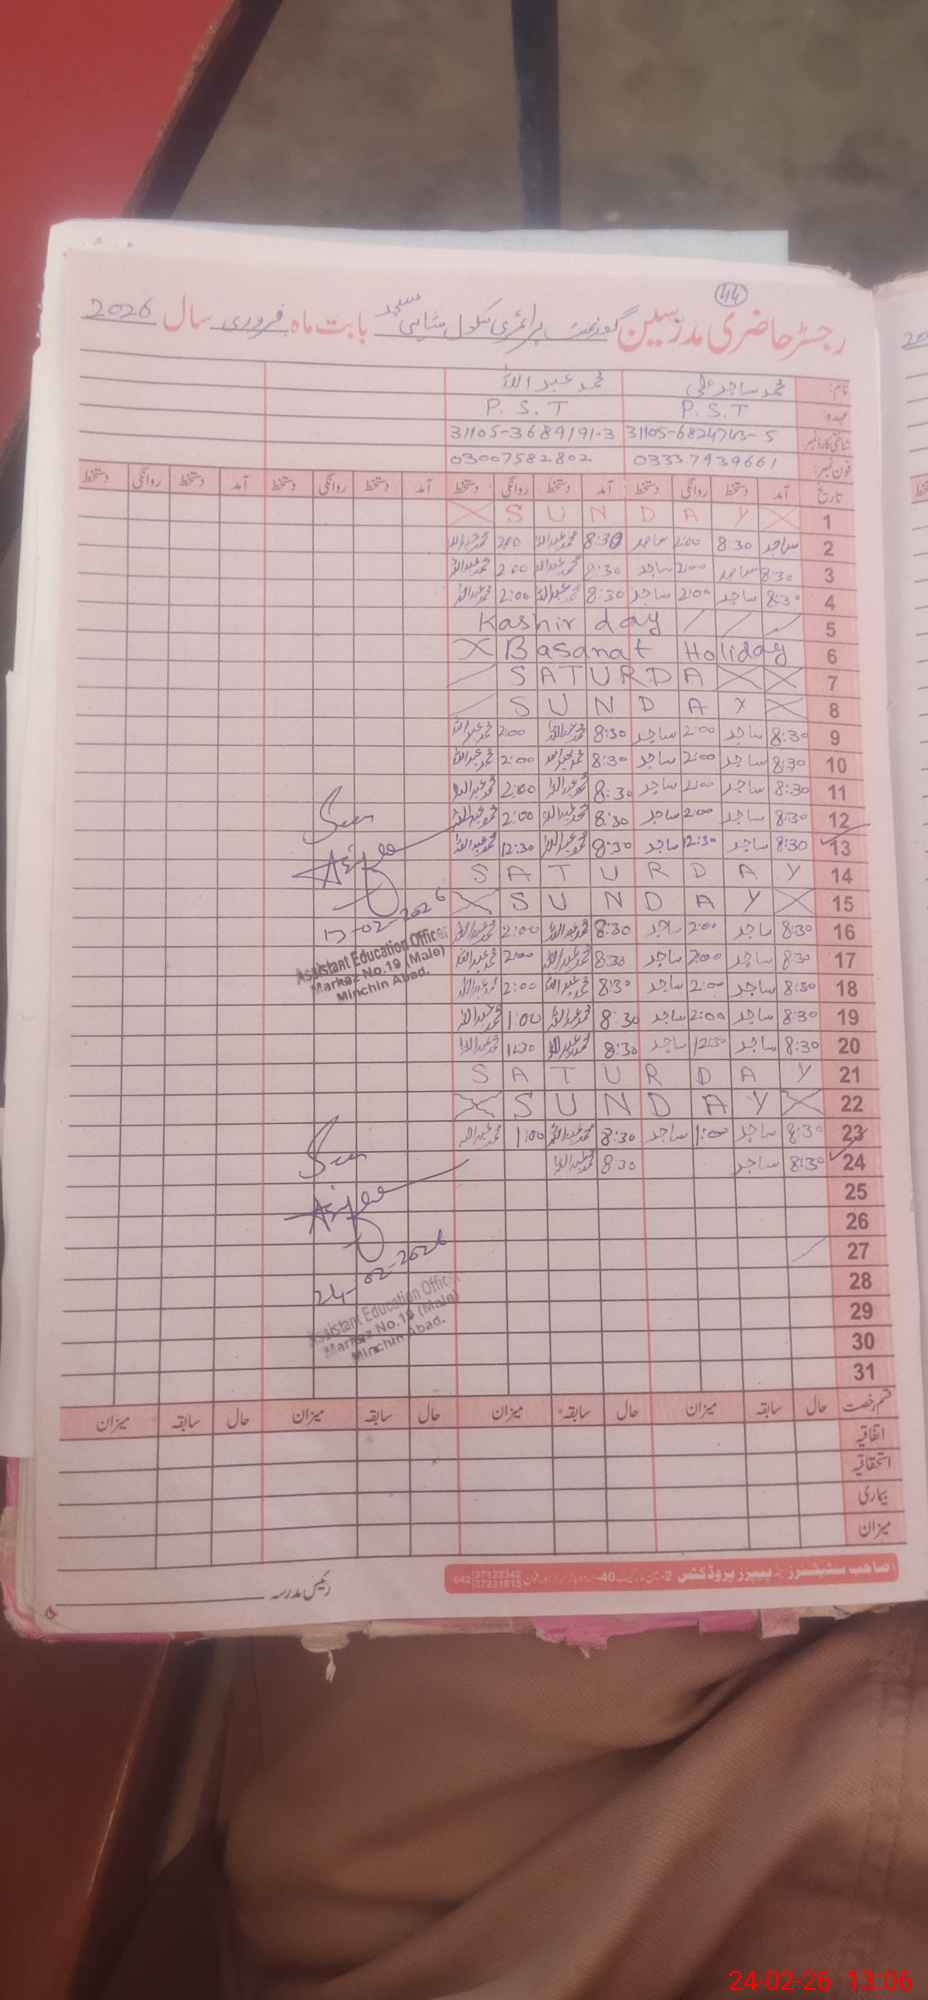 44
رجسٹر حاضری مدرسین گورنمنٹ پرائمری سکول مسجد بابت ماہ فروری سال 2026
نام: محمد ساجد علی محمد عبداللہ
عہدہ P.S.T P.S.T
شناختی کارڈ نمبر 31105-6824763-5 31105-3689191-3
فون نمبر: 03337939661 03007582802
تاریخ آمد دستخط روانگی دستخط آمد دستخط روانگی دستخط آمد دستخط روانگی دستخط آمد دستخط روانگی دستخط
1 SUNDAY
2 ساجد 8:30 2:00 ساجد 8:30 محمد عبداللہ 2:00 محمد عبداللہ
3 8:30 ساجد 2:00 ساجد 8:30 محمد عبداللہ 2:00 محمد عبداللہ
4 8:30 ساجد 2:00 ساجد 8:30 محمد عبداللہ 2:00 محمد عبداللہ
5 Kashir day
6 Basanat Holiday
7 SATURDA
8 SUNDAY
9 8:30 ساجد 2:00 ساجد 8:30 محمد عبداللہ 2:00 محمد عبداللہ
10 8:30 ساجد 2:00 ساجد 8:30 محمد عبداللہ 2:00 محمد عبداللہ
11 8:30 ساجد 2:00 ساجد 8:30 محمد عبداللہ 2:00 محمد عبداللہ
12 8:30 ساجد 2:00 ساجد 8:30 محمد عبداللہ 2:00 محمد عبداللہ
13 8:30 ساجد 12:30 ساجد 8:30 محمد عبداللہ 12:30 محمد عبداللہ
14 SATURDAY
15 SUNDAY
16 8:30 ساجد 2:00 ساجد 8:30 محمد عبداللہ 2:00 محمد عبداللہ
17 8:30 ساجد 2:00 ساجد 8:30 محمد عبداللہ 2:00 محمد عبداللہ
18 8:30 ساجد 2:00 ساجد 8:30 محمد عبداللہ 2:00 محمد عبداللہ
19 8:30 ساجد 2:00 ساجد 8:30 محمد عبداللہ 1:00 محمد عبداللہ
20 8:30 ساجد 12:30 ساجد 8:30 محمد عبداللہ محمد عبداللہ
21 SATURDAY
22 SUNDAY
23 8:30 ساجد 1:00 ساجد 8:30 محمد عبداللہ 1:00 محمد عبداللہ
24 8:30 ساجد 8:30 محمد عبداللہ
25
26
27
28
29
30
31
Seen
13-02-2026
Assistant Education Officer
Markaz No.19 (Male)
Minchin Abad.
Seen
24-02-2026
Assistant Education Officer
Markaz No.19 (Male)
Minchin Abad.
قسم رخصت حال سابقہ میزان حال سابقہ میزان حال سابقہ میزان حال سابقہ میزان
اتفاقیہ
استحقاقیہ
بیماری
میزان
رئیس مدرسہ
24-02-26 13:06